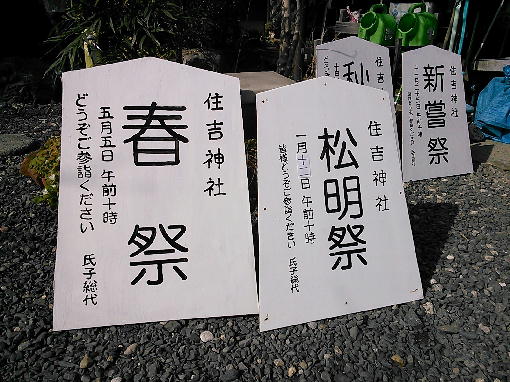 住吉神社
春祭
五月五日 午前十時
どうぞご参詣ください
氏子総代
住吉神社
松明祭
一月十二日 午前十時
皆様どうぞご参詣ください 氏子総代
秋
住吉神社
新嘗祭